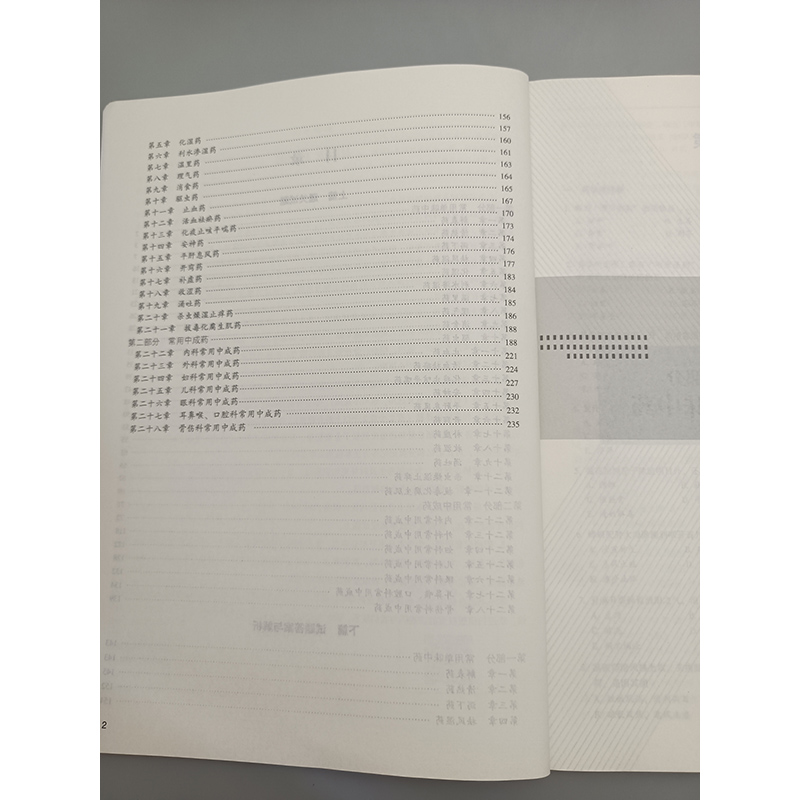 第五章 化湿药 156
第六章 利水渗湿药 157
第七章 温里药 160
第八章 理气药 161
第九章 消食药 163
第十章 驱虫药 164
第十一章 止血药 165
第十二章 活血祛瘀药 167
第十三章 化痰止咳平喘药 170
第十四章 安神药 173
第十五章 平肝息风药 174
第十六章 开窍药 176
第十七章 补虚药 177
第十八章 收涩药 183
第十九章 涌吐药 184
第二十章 杀虫燥湿止痒药 185
第二十一章 拔毒化腐生肌药 186
第二部分 常用中成药 188
第二十二章 内科常用中成药 188
第二十三章 外科常用中成药 221
第二十四章 妇科常用中成药 224
第二十五章 儿科常用中成药 227
第二十六章 眼科常用中成药 230
第二十七章 耳鼻喉、口腔科常用中成药 232
第二十八章 骨伤科常用中成药 235
2